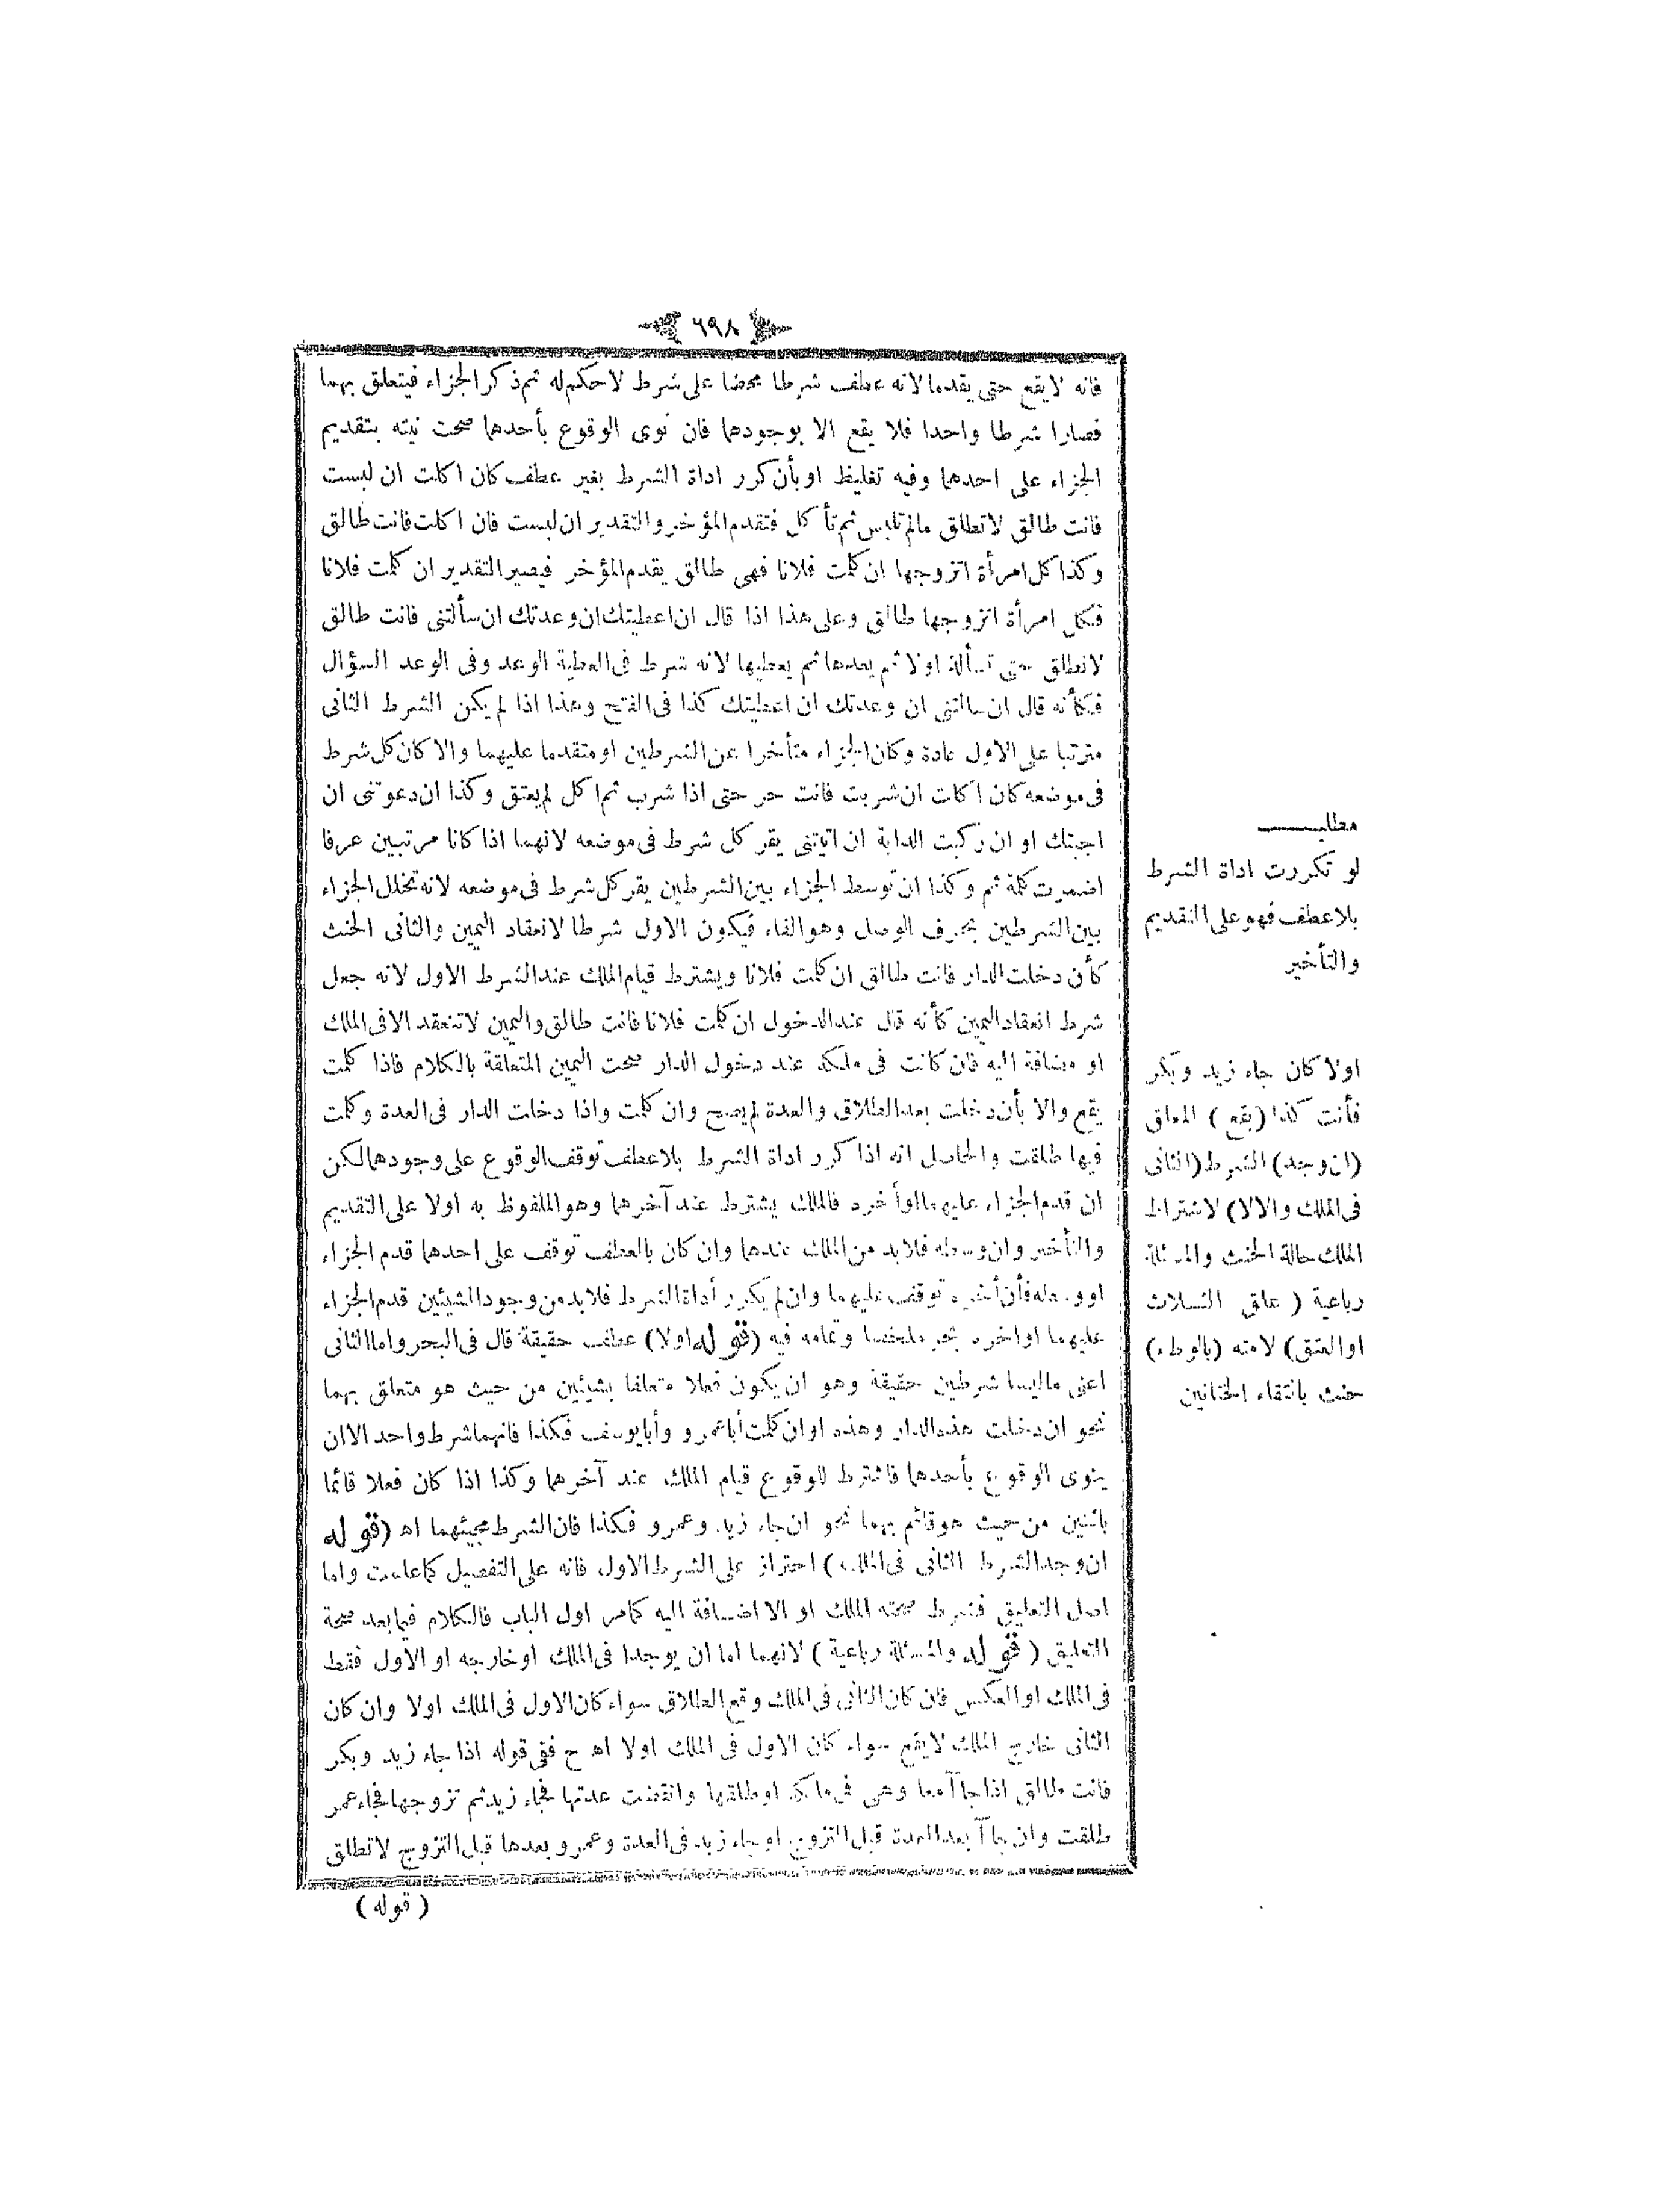 ٦٩٨
فانه لا يقع حتى يقدما لانه عطف شرطا محضا على شرط لا حكم له ثم ذكر الجزاء فيتعلق بهما
فصارا شرطا واحدا فلا يقع الا بوجودهما فان نوى الوقوع بأحدهما صحت نيته بتقديم
الجزاء على احدهما وفيه تغليظ او بأن كرر اداة الشرط بغير عطف كان اكلت ان لبست
فانت طالق لا تطلق مالم تلبس ثم تأكل فتقدم المؤخر والتقدير ان لبست فان اكلت فانت طالق
وكذا كل امرأة اتزوجها ان كلمت فلانا فهى طالق يقدم المؤخر فيصير التقدير ان كلمت فلانا
فكل امرأة اتزوجها طالق وعلى هذا اذا قال ان اعطيتك ان وعدتك ان سألتنى فانت طالق
لا تطلق حتى تسأله اولا ثم يعدها ثم يعطيها لانه شرط فى العطية الوعد وفى الوعد السؤال
فكأنه قال ان سالتنى ان وعدتك ان اعطيتك كذا فى الفتح وهذا اذا لم يكن الشرط الثانى
مترتبا على الاول عادة وكان الجزاء متأخرا عن الشرطين او متقدما عليهما والا كان كل شرط
فى موضعه كان اكلت ان شربت فانت حر حتى اذا شرب ثم اكل لم يعتق وكذا ان دعوتنى ان
اجبتك او ان ركبت الدابة ان اتيتنى يقر كل شرط فى موضعه لانهما اذا كانا مرتبين عرفا
اضمرت كلمة ثم وكذا ان توسط الجزاء بين الشرطين يقر كل شرط فى موضعه لانه تخلل الجزاء
بين الشرطين بحرف الوصل وهو الفاء فيكون الاول شرطا لانعقاد اليمين والثانى الحنث
كأن دخلت الدار فانت طالق ان كلمت فلانا ويشترط قيام الملك عند الشرط الاول لانه جعل
شرط انعقاد اليمين كأنه قال عند الدخول ان كلمت فلانا فانت طالق واليمين لا تنعقد الا فى الملك
او مضافة اليه فان كانت فى ملكه عند دخول الدار صحت اليمين المتعلقة بالكلام فاذا كلمت
يقع والا بأن دخلت بعد الطلاق والعدة لم يصح وان كلمت واذا دخلت الدار فى العدة وكلمت
فيها طلقت والحاصل انه اذا كرر اداة الشرط بلا عطف توقف الوقوع على وجودهما لكن
ان قدم الجزاء عليهما او أخره فالملك يشترط عند آخرهما وهو الملفوظ به اولا على التقديم
والتأخير وان وسطه فلا بد من الملك عندهما وان كان بالعطف توقف على احدهما قدم الجزاء
او وسطه فأن أخره توقف عليهما وان لم يكرر أداة الشرط فلا بد من وجود الشيئين قدم الجزاء
عليهما او اخره بحر ملخصا وتمامه فيه (قوله اولا) عطف حقيقة قال فى البحر واما الثانى
اعنى ما ليسا شرطين حقيقة وهو ان يكون فعلا متعلقا بشيئين من حيث هو متعلق بهما
نحو ان دخلت هذه الدار وهذه او ان كلمت أبا عمرو وأبا يوسف فكذا فانهما شرط واحد الا ان
ينوى الوقوع بأحدهما فاشترط للوقوع قيام الملك عند آخرهما وكذا اذا كان فعلا قائما
باثنين من حيث هو قائم بهما نحو ان جاء زيد وعمرو فكذا فان الشرط مجيئهما اه (قوله
ان وجد الشرط الثانى فى الملك) احتراز على الشرط الاول فانه على التفصيل كما علمت واما
اصل التعليق فشرط صحته الملك او الا اضافة اليه كما مر اول الباب فالكلام فيما بعد صحة
التعليق (قوله والمسئلة رباعية) لانهما اما ان يوجدا فى الملك او خارجه او الاول فقط
فى الملك او العكس فان كان الثانى فى الملك وقع الطلاق سواء كان الاول فى الملك اولا وان كان
الثانى خارج الملك لا يقع سواء كان الاول فى الملك اولا اه ح ففى قوله اذا جاء زيد وبكر
فانت طالق اذا جاآ معا وهى فى ملكه او طلقها وانقضت عدتها فجاء زيد ثم تزوجها فجاء عمر
طلقت وان جاآ بعد العدة قبل التزوج او جاء زيد فى العدة وعمرو بعدها قبل التزوج لا تطلق
(قوله)
مطلب
لو تكررت اداة الشرط
بلا عطف فهو على التقديم
والتأخير
اولا كان جاء زيد وبكر
فأنت كذا (يقع) المعلق
(ان وجد) الشرط (الثانى
فى الملك والا لا) لاشتراط
الملك حالة الحنث والمسئلة
رباعية (علق الثلاث
او العتق) لامته (بالوطء)
حنث بالتقاء الختانين